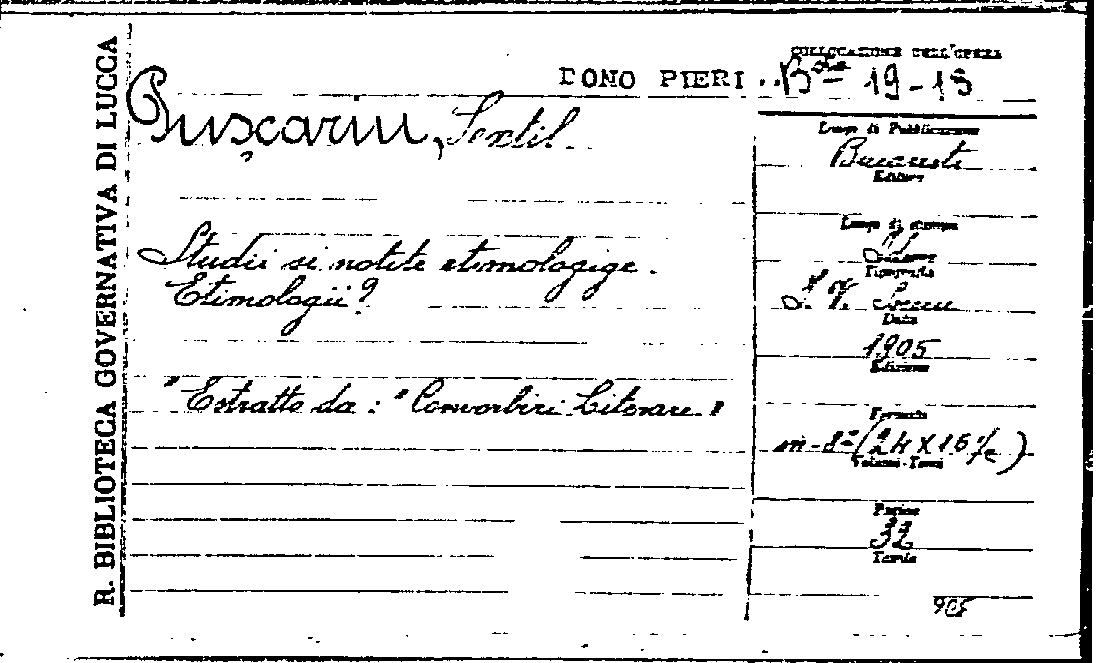 R. BIBLIOTECA GOVERNATIVA DI LUCCA
COLLOCAZIONE DELL'OPERA
DONO PIERI .. B.ta 19-18
Puşcariu, Sextil
Luogo di Pubblicazione
Bucuresti
Editore
Luogo di stampa
Studii si notite etimologige.
Tipografia
Etimologii?
Data
1905
Edizione
"Estratto da: "Convorbiri Literare"
Formato
in-8º (24 X 16 1/2)
Volumi-Tomi
Pagine
32
Tavole
905